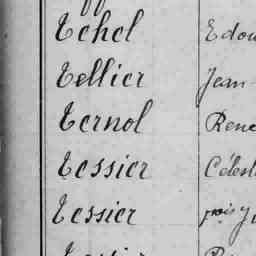 Tehel Edou
Tellier Jean
Ternol René
Tessier Célest
Tessier